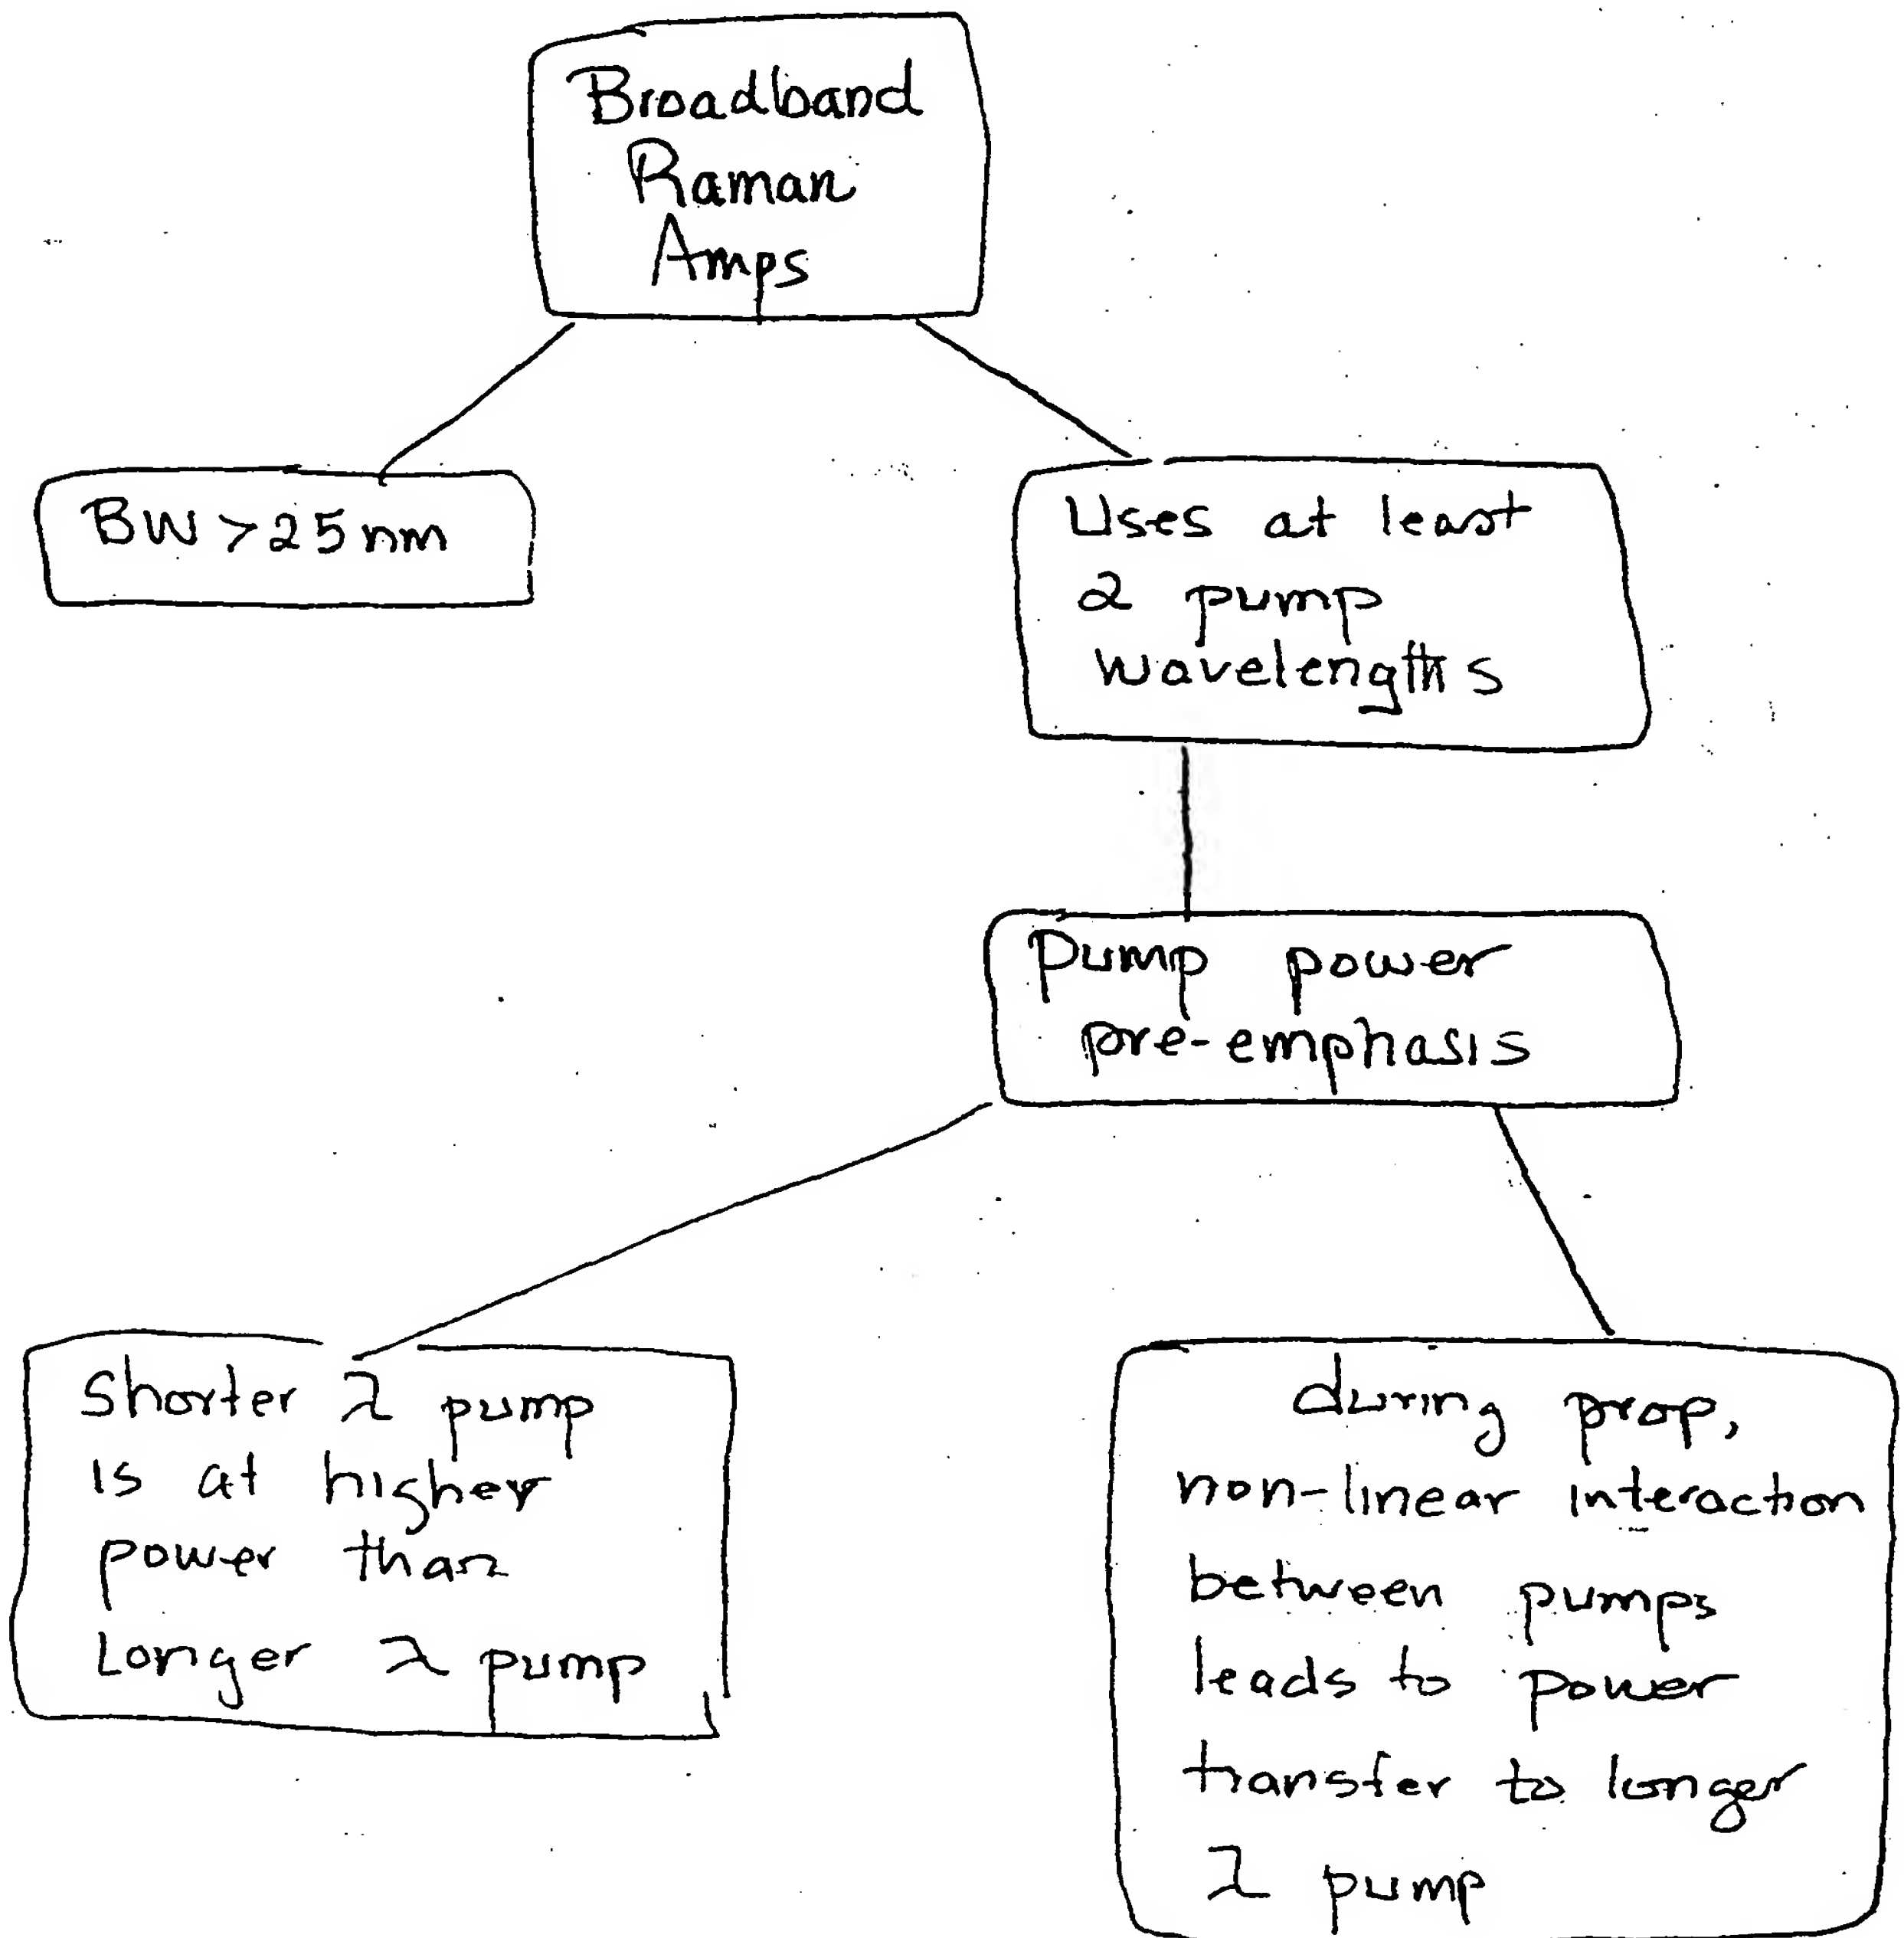 Broadband
Raman
Amps
BW > 25 nm
Uses at least
2 pump
wavelengths
Pump power
pre-emphasis
Shorter λ pump
is at higher
power than
Longer λ pump
during prop,
non-linear interaction
between pumps
leads to power
transfer to longer
λ pump